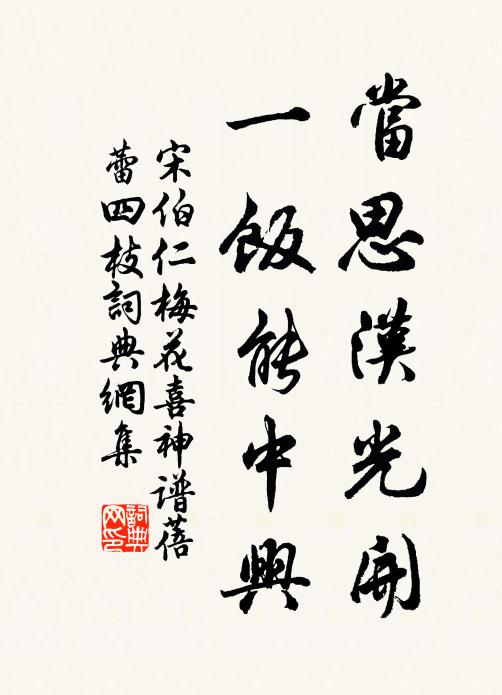 當思漢光開
一飯能中興
宋伯仁梅花喜神譜蓓
蕾四枝詞典網集
詞典
网印